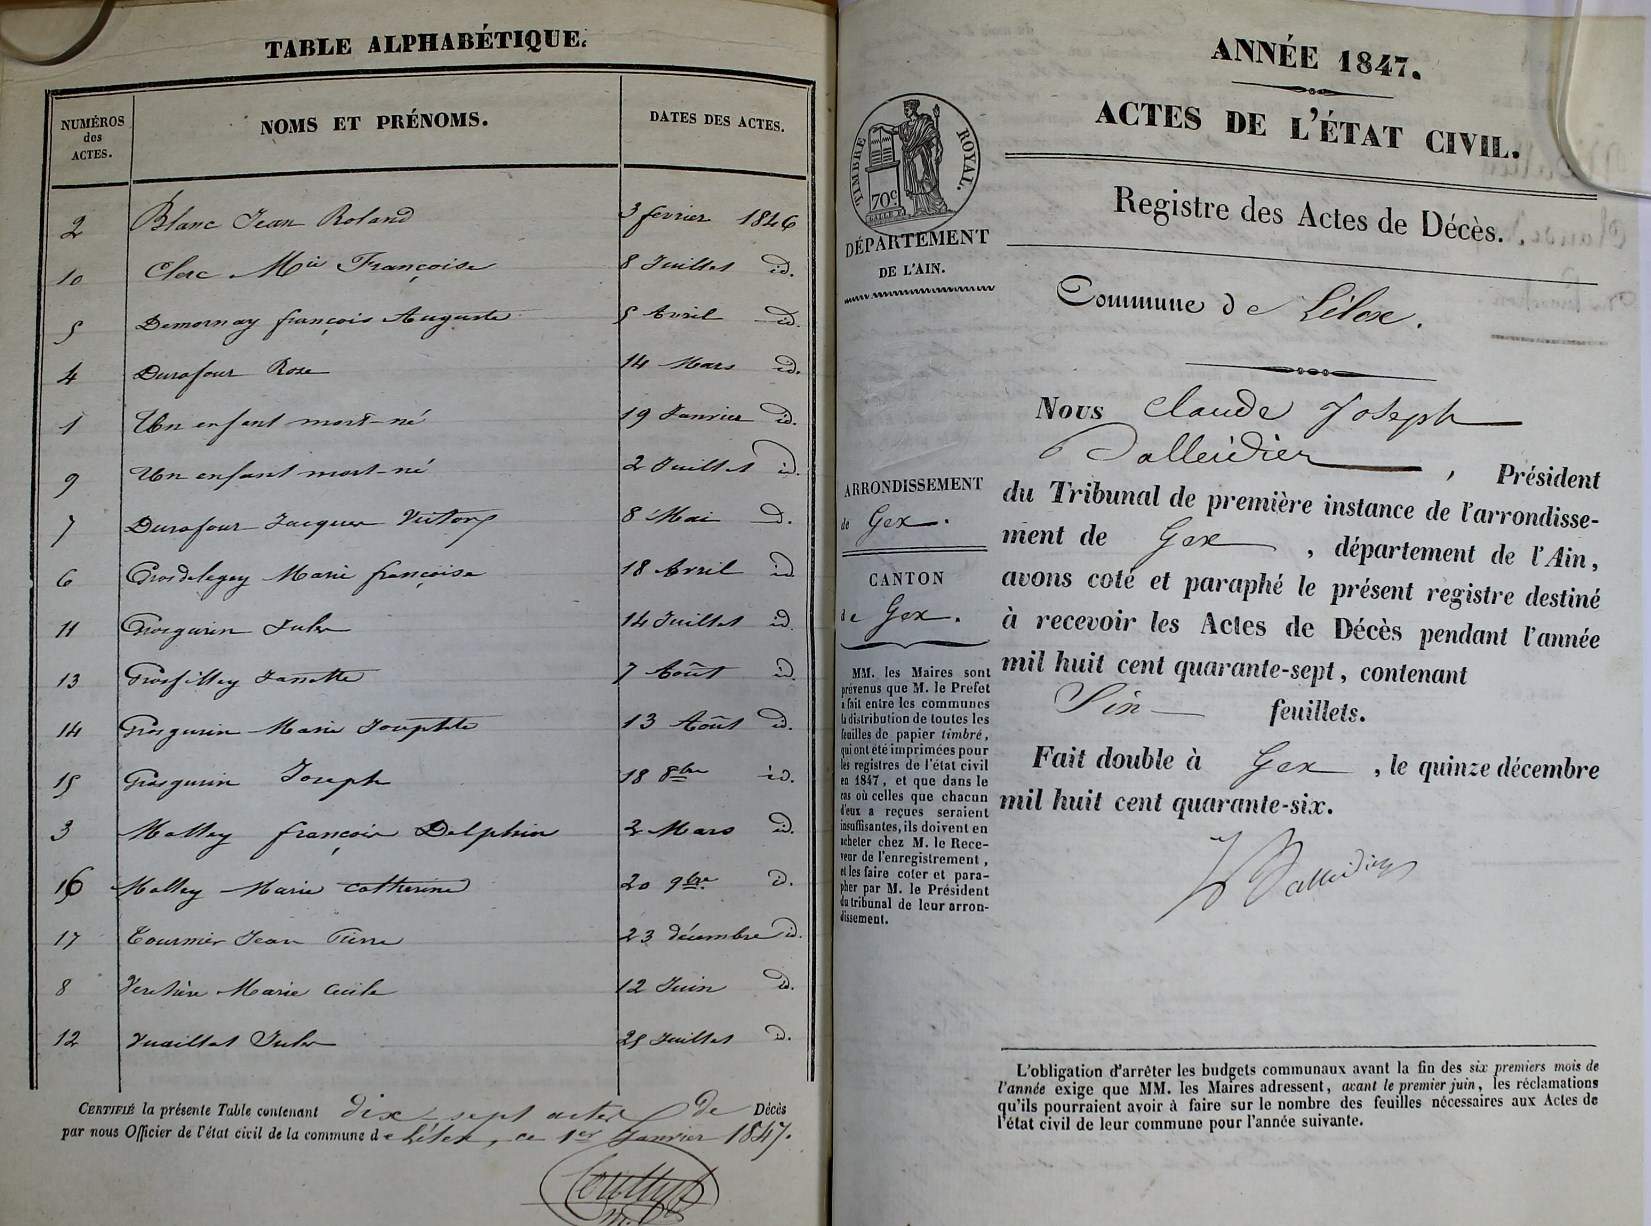 TABLE ALPHABÉTIQUE.
NUMÉROS des ACTES. NOMS ET PRÉNOMS. DATES DES ACTES.
2 Blanc Jean Roland 3 fevrier 1846
10 Clerc Mie Françoise 8 Juillet id.
5 Demornay françois Auguste 5 Avril id.
4 Durafour Rose 14 Mars id.
1 Un enfant mort-né 19 Janvier id.
9 Un enfant mort-né 2 Juillet id.
7 Durafour Jacques Victor 8 Mai id.
6 Grosdelegey Marie françoise 18 Avril id
11 Grosgurin Jules 14 Juillet id.
13 Grosfilley Jannette 7 Août id.
14 Grosgurin Marie Josephte 13 Août id.
15 Grosgurin Joseph 18 8bre id.
3 Malley françois Delphin 2 Mars id.
16 Malley Marie Catherine 20 9bre id.
17 Tournier Jean Pierre 23 décembre id.
8 Marie Cécile 12 Juin id.
12 Vuaillat Jules 25 Juillet id.
CERTIFIÉ la présente Table contenant dix-sept actes de Décès
par nous Officier de l'état civil de la commune de Lélex, ce 1er Janvier 1847.
ANNÉE 1847.
ACTES DE L'ÉTAT CIVIL.
TIMBRE ROYAL.
70c
DÉPARTEMENT
DE L'AIN.
Registre des Actes de Décès.
Commune de Lélex.
Nous Claude Joseph
Balleidier, Président
du Tribunal de première instance de l'arrondisse-
ment de Gex, département de l'Ain,
avons coté et paraphé le présent registre destiné
à recevoir les Actes de Décès pendant l'année
mil huit cent quarante-sept, contenant
Six feuillets.
Fait double à Gex, le quinze décembre
mil huit cent quarante-six.
Balleidier
ARRONDISSEMENT
de Gex.
CANTON
de Gex.
MM. les Maires sont
prévenus que M. le Prefet
a fait entre les communes
la distribution de toutes les
feuilles de papier timbré,
qui ont été imprimées pour
les registres de l'état civil
en 1847, et que dans le
cas où celles que chacun
d'eux a reçues seraient
insuffisantes, ils doivent en
acheter chez M. le Rece-
veur de l'enregistrement,
et les faire coter et para-
pher par M. le Président
du tribunal de leur arron-
dissement.
L'obligation d'arrêter les budgets communaux avant la fin des six premiers mois de
l'année exige que MM. les Maires adressent, avant le premier juin, les réclamations
qu'ils pourraient avoir à faire sur le nombre des feuilles nécessaires aux Actes de
l'état civil de leur commune pour l'année suivante.